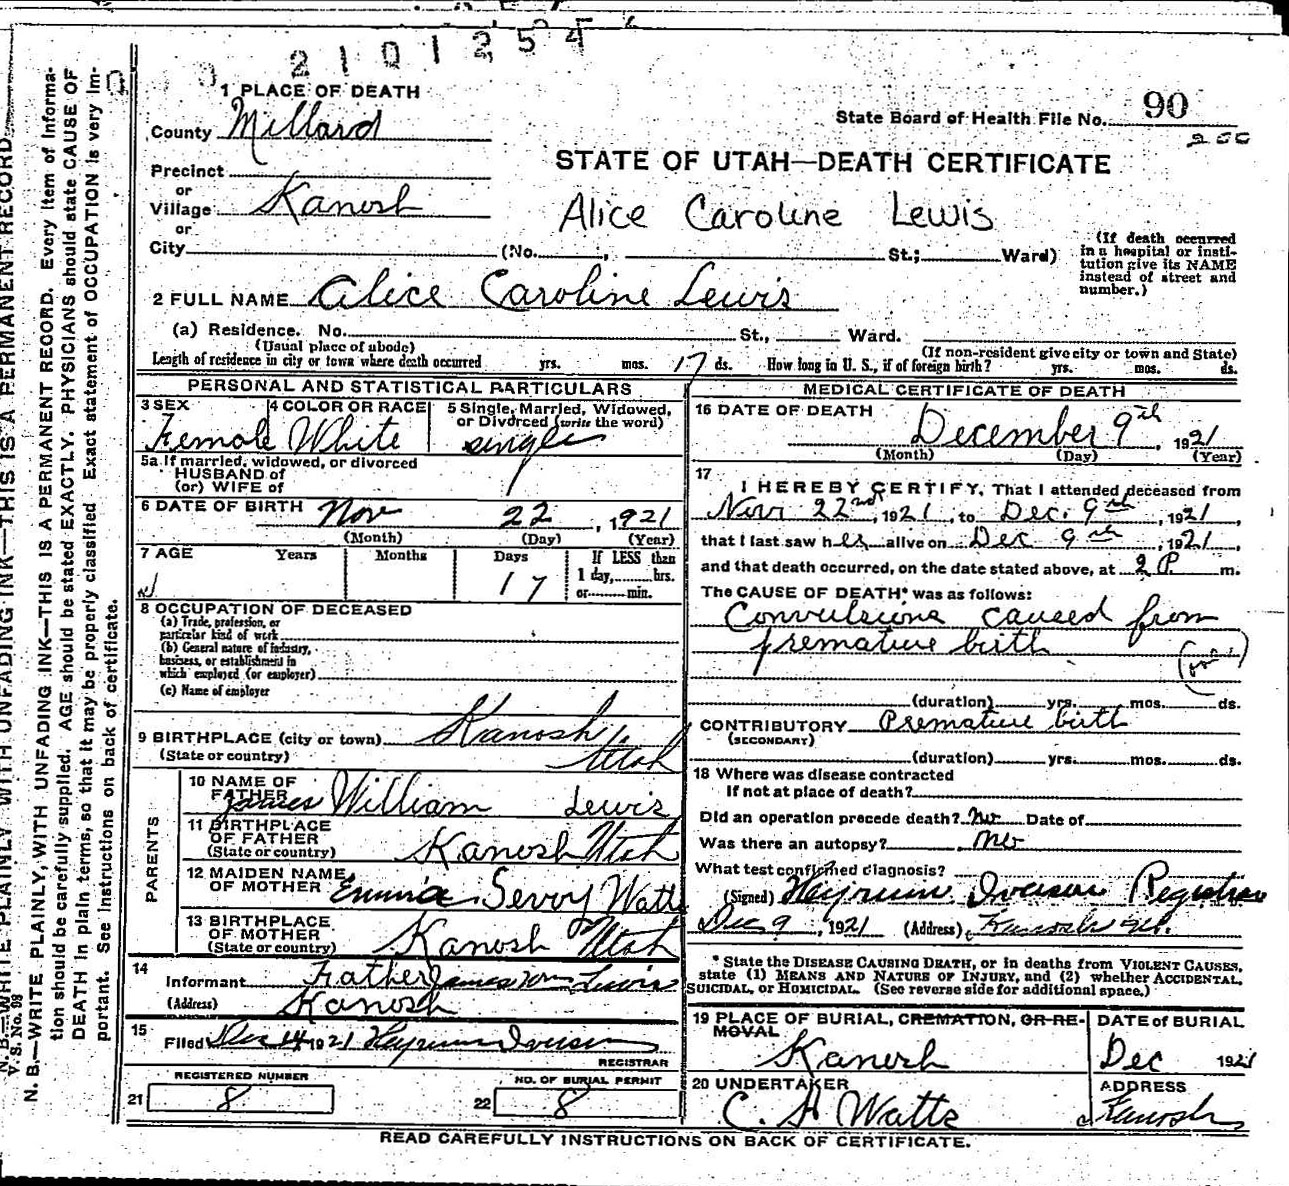 2101254
1 PLACE OF DEATH
County Millard
State Board of Health File No. 90
200
Precinct
or
Village Kanosh
or
City (No. , St.; Ward)
STATE OF UTAH—DEATH CERTIFICATE
Alice Caroline Lewis
(If death occurred
in a hospital or insti-
tution give its NAME
instead of street and
number.)
2 FULL NAME Alice Caroline Lewis
(a) Residence. No. St., Ward.
(Usual place of abode) (If non-resident give city or town and State)
Length of residence in city or town where death occurred yrs. mos. 17 ds. How long in U. S., if of foreign birth? yrs. mos. ds.
PERSONAL AND STATISTICAL PARTICULARS
3 SEX 4 COLOR OR RACE 5 Single, Married, Widowed,
or Divorced (write the word)
Female White single
5a If married, widowed, or divorced
HUSBAND of
(or) WIFE of
6 DATE OF BIRTH Nov 22, 1921
(Month) (Day) (Year)
7 AGE Years Months Days If LESS than
1 day, hrs.
17 or min.
8 OCCUPATION OF DECEASED
(a) Trade, profession, or
particular kind of work
(b) General nature of industry,
business, or establishment in
which employed (or employer)
(c) Name of employer
9 BIRTHPLACE (city or town) Kanosh
(State or country) Utah
PARENTS
10 NAME OF
FATHER James William Lewis
11 BIRTHPLACE
OF FATHER
(State or country) Kanosh Utah
12 MAIDEN NAME
OF MOTHER Emma Watts
13 BIRTHPLACE
OF MOTHER
(State or country) Kanosh Utah
14
Informant Father James Wm Lewis
(Address) Kanosh
15
Filed Dec 14 1921 Heyrum Iverson
REGISTRAR
REGISTERED NUMBER NO. OF BURIAL PERMIT
21 8 22 8
MEDICAL CERTIFICATE OF DEATH
16 DATE OF DEATH
December 9th, 1921
(Month) (Day) (Year)
17
I HEREBY CERTIFY, That I attended deceased from
Nov 22nd, 1921, to Dec. 9th, 1921,
that I last saw h er alive on Dec 9th, 1921,
and that death occurred, on the date stated above, at 2 P m.
The CAUSE OF DEATH* was as follows:
Convulsions caused from
premature birth
(duration) yrs. mos. ds.
CONTRIBUTORY Premature birth
(SECONDARY)
(duration) yrs. mos. ds.
18 Where was disease contracted
If not at place of death?
Did an operation precede death? No Date of
Was there an autopsy? No
What test confirmed diagnosis?
(Signed) Heyrum Iverson Registrar
Dec 9, 1921 (Address) Kanosh Ut.
* State the DISEASE CAUSING DEATH, or in deaths from VIOLENT CAUSES,
state (1) MEANS AND NATURE OF INJURY, and (2) whether ACCIDENTAL,
SUICIDAL, or HOMICIDAL. (See reverse side for additional space.)
19 PLACE OF BURIAL, CREMATION, OR RE-
MOVAL
Kanosh
DATE of BURIAL
Dec 1921
20 UNDERTAKER
C. H Watts
ADDRESS
Kanosh
READ CAREFULLY INSTRUCTIONS ON BACK OF CERTIFICATE.
N. B.—WRITE PLAINLY WITH UNFADING INK—THIS IS A PERMANENT RECORD
V. S. No. 98
N. B.—WRITE PLAINLY, WITH UNFADING INK—THIS IS A PERMANENT RECORD. Every item of informa-
tion should be carefully supplied. AGE should be stated EXACTLY. PHYSICIANS should state CAUSE OF
DEATH in plain terms, so that it may be properly classified. Exact statement of OCCUPATION is very im-
portant. See instructions on back of certificate.